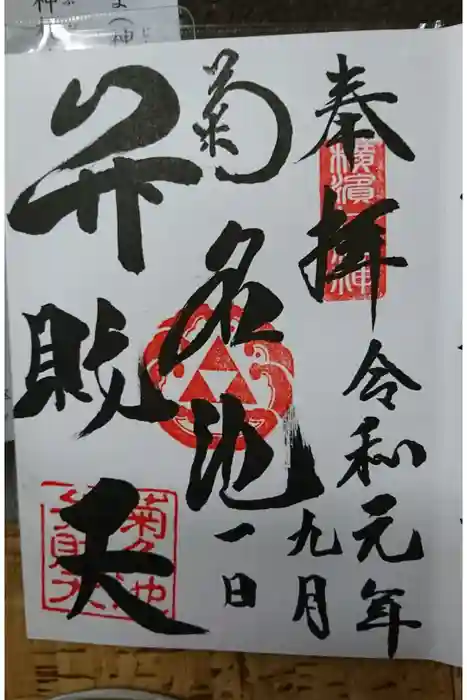 奉拝
横濱
神
令和元年
九月
一日
菊名池
弁財天
菊名池
弁財天